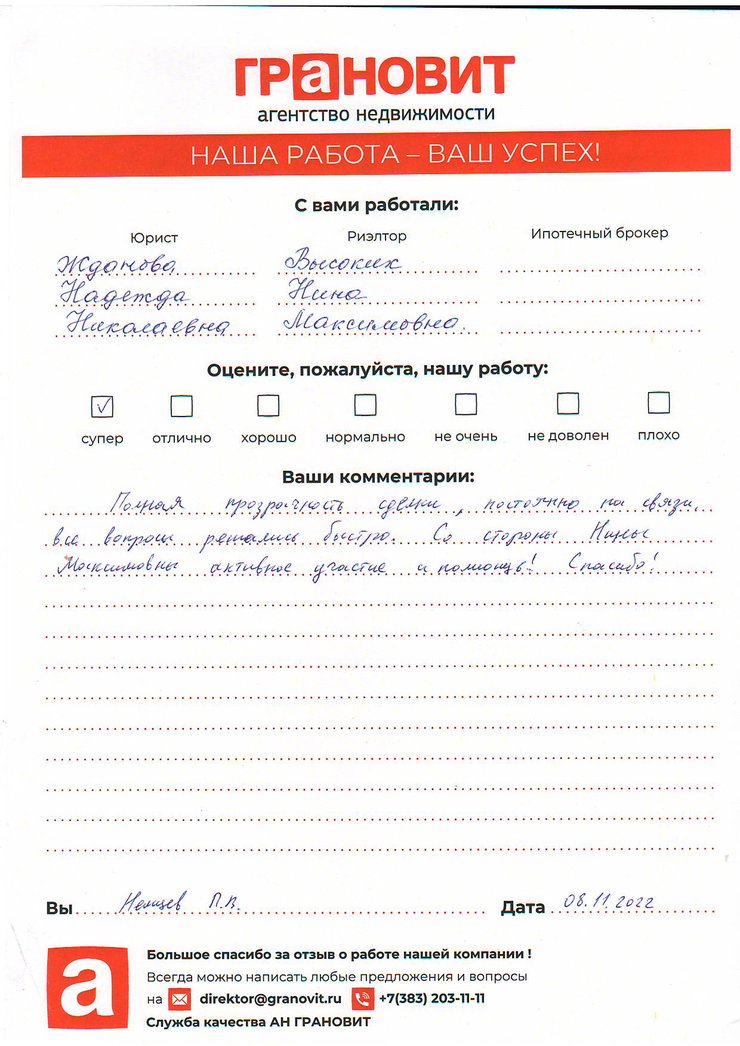 ГРаНОВИТ
агентство недвижимости
НАША РАБОТА – ВАШ УСПЕХ!
С вами работали:
Юрист Риэлтор Ипотечный брокер
Жданова Высоких
Надежда Нина
Николаевна Максимовна.
Оцените, пожалуйста, нашу работу:
супер отлично хорошо нормально не очень не доволен плохо
Ваши комментарии:
Полная прозрачность сделки, постоянно на связи,
все вопросы решались быстро. Со стороны Нины
Максимовны активное участие и помощь! Спасибо!
Вы П.В. Дата 08.11.2022
а
Большое спасибо за отзыв о работе нашей компании !
Всегда можно написать любые предложения и вопросы
на direktor@granovit.ru +7(383) 203-11-11
Служба качества АН ГРАНОВИТ